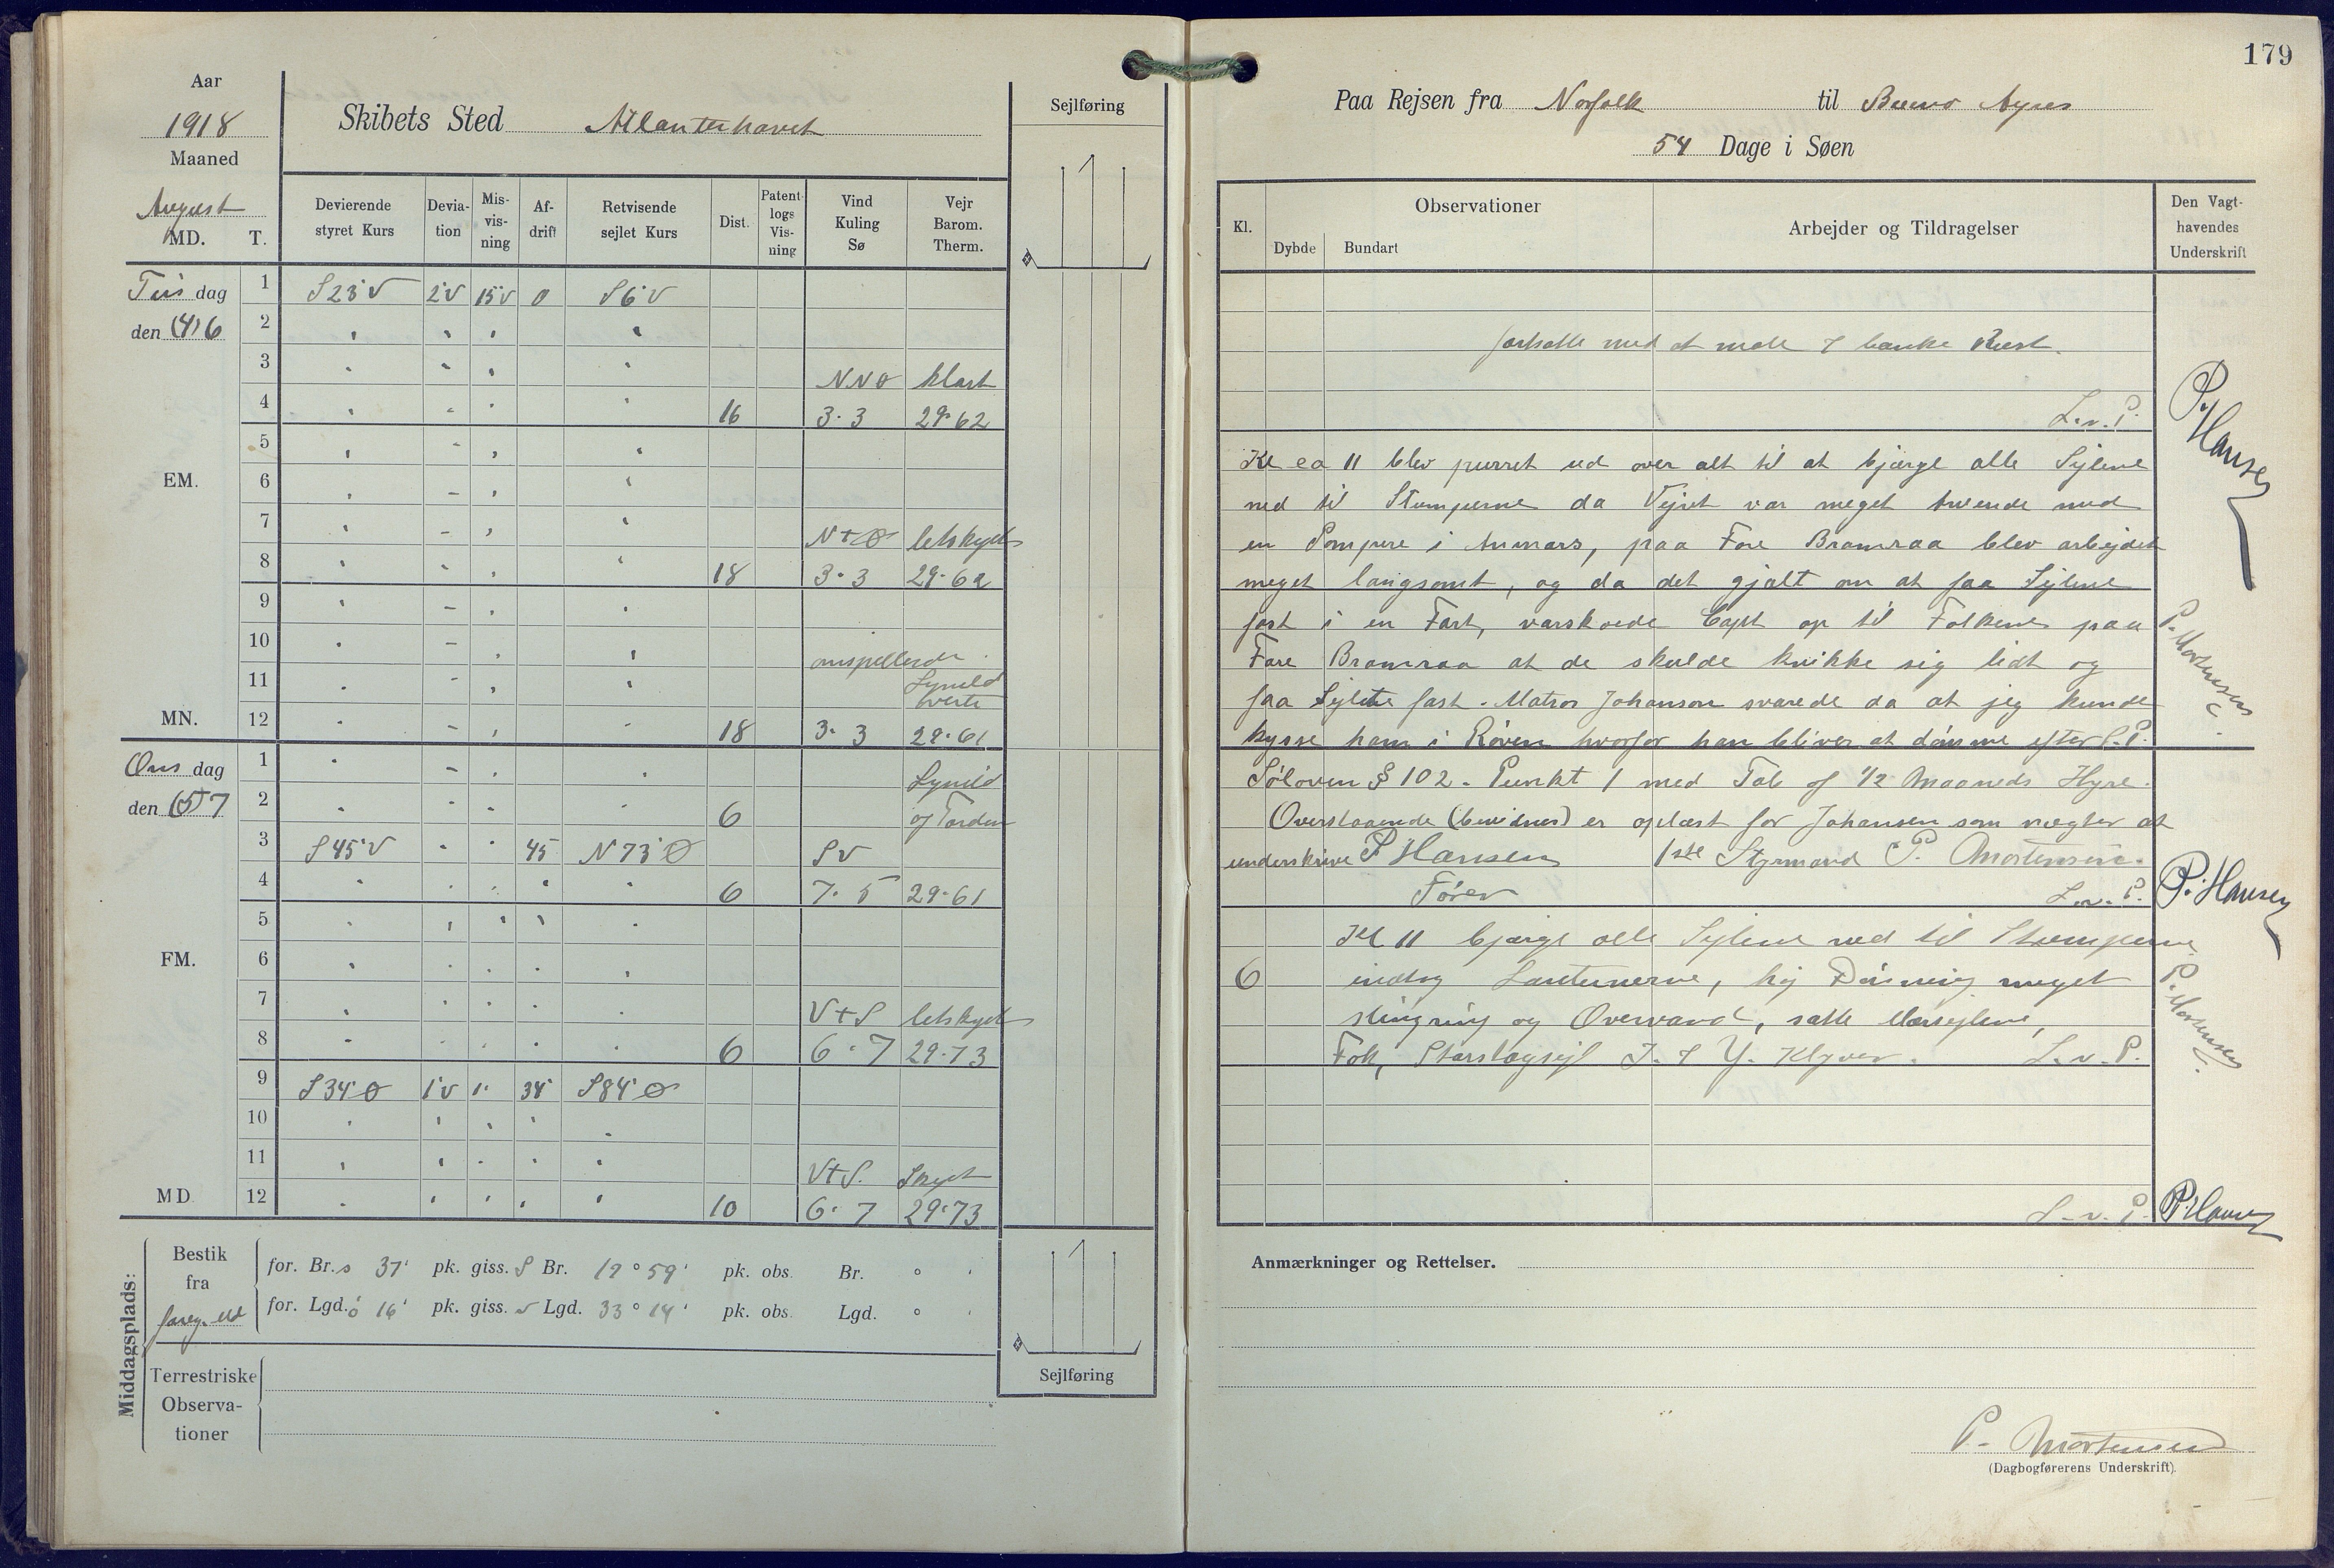 Aar
1918
Maaned
August
MD. T.
Skibets Sted Atlanterhavet
Sejlføring
Devierende styret Kurs
Devia-tion
Mis-vis-ning
Af-drift
Retvisende sejlet Kurs
Dist.
Patent-logs Vis-ning
Vind Kuling Sø
Vejr Barom. Therm.
Tirs dag 1 S23°V 2°V 15°V 0 S6°V
den (4) 6 2 " " " "
3 " " " " NNO klart
4 " " " " 16 3·3 29·62
5 " " " "
EM. 6 " " " "
7 " " " " N+Ø letskyet
8 " " " " 18 3·3 29·62
9 " " " "
10 " " " " omspellende
11 " " " " Lynild
MN. 12 " " " " 18 3·3 29·61
Ons dag 1 " " " " Lynild
den (5) 7 2 " " " " 6 og Torden
3 S45°V " " 45 N73°Ø SV
4 " " " " " 6 7·5 29·61
5 " " " " "
FM. 6 " " " " "
7 " " " " " V+S letskyet
8 " " " " " 6 6·7 29·73
9 S34°Ø 1°V 1" 34° S84°Ø
10 " " " " "
11 " " " " " V+S. Skyet
MD 12 " " " " " 10 6·7 29·73
Middagsplads:
Bestik fra foreg. Md
for. Br. S 37' pk. giss. S Br. 19° 59' pk. obs. Br. ° '
for. Lgd. Ö 16' pk. giss. V Lgd. 33° 14' pk. obs. Lgd. ° '
Terrestriske Observa-tioner
Sejlføring
179
Paa Rejsen fra Norfolk til Buenos Ayres
54 Dage i Søen
Kl.
Observationer
Dybde Bundart
Arbejder og Tildragelser
Den Vagt-havendes Underskrift
fortsatte med at male & banke Rust.
L.v.P.
P. Hansen
Kl ca 11 blev purret ud over alt til at bjærge alle Sejlene
ned til Stumperne da Vejret var meget truende med
en Pompere i Anmars, paa Fore Bramraa blev arbejdet
meget langsomt, og da det gjalt om at faa Sejlene
fast i en Fart, varskoede Capt op til Folkene paa
Fore Bramraa at de skulde kvikke sig lidt og
faa Sejlene fast. Matros Johanson svarede da at jeg kunde
kysse ham i Røven hvorfor han bliver at dømme efter L.P.
P. Mortensen
Søloven § 102. Punkt 1 med Tab af 1/2 Maaneds Hyre.
Overstaaende (bevidnes) er oplæst for Johansen som nægter at
underskrive P Hansen 1ste Styrmand P. Mortensen.
Fører L.v.P. P. Hansen
Kl 11 bjærge alle Sejlene ned til Stumperne
6 indtog Lanternerne, høj Dønning meget
slingring og Overvand, satte Mærsejlene,
Fok, Storstagsejl I. & Y. Klyver. L.v.P.
P. Mortensen
L.v.P. P. Hansen
Anmærkninger og Rettelser.
P. Mortensen
(Dagbogførerens Underskrift).